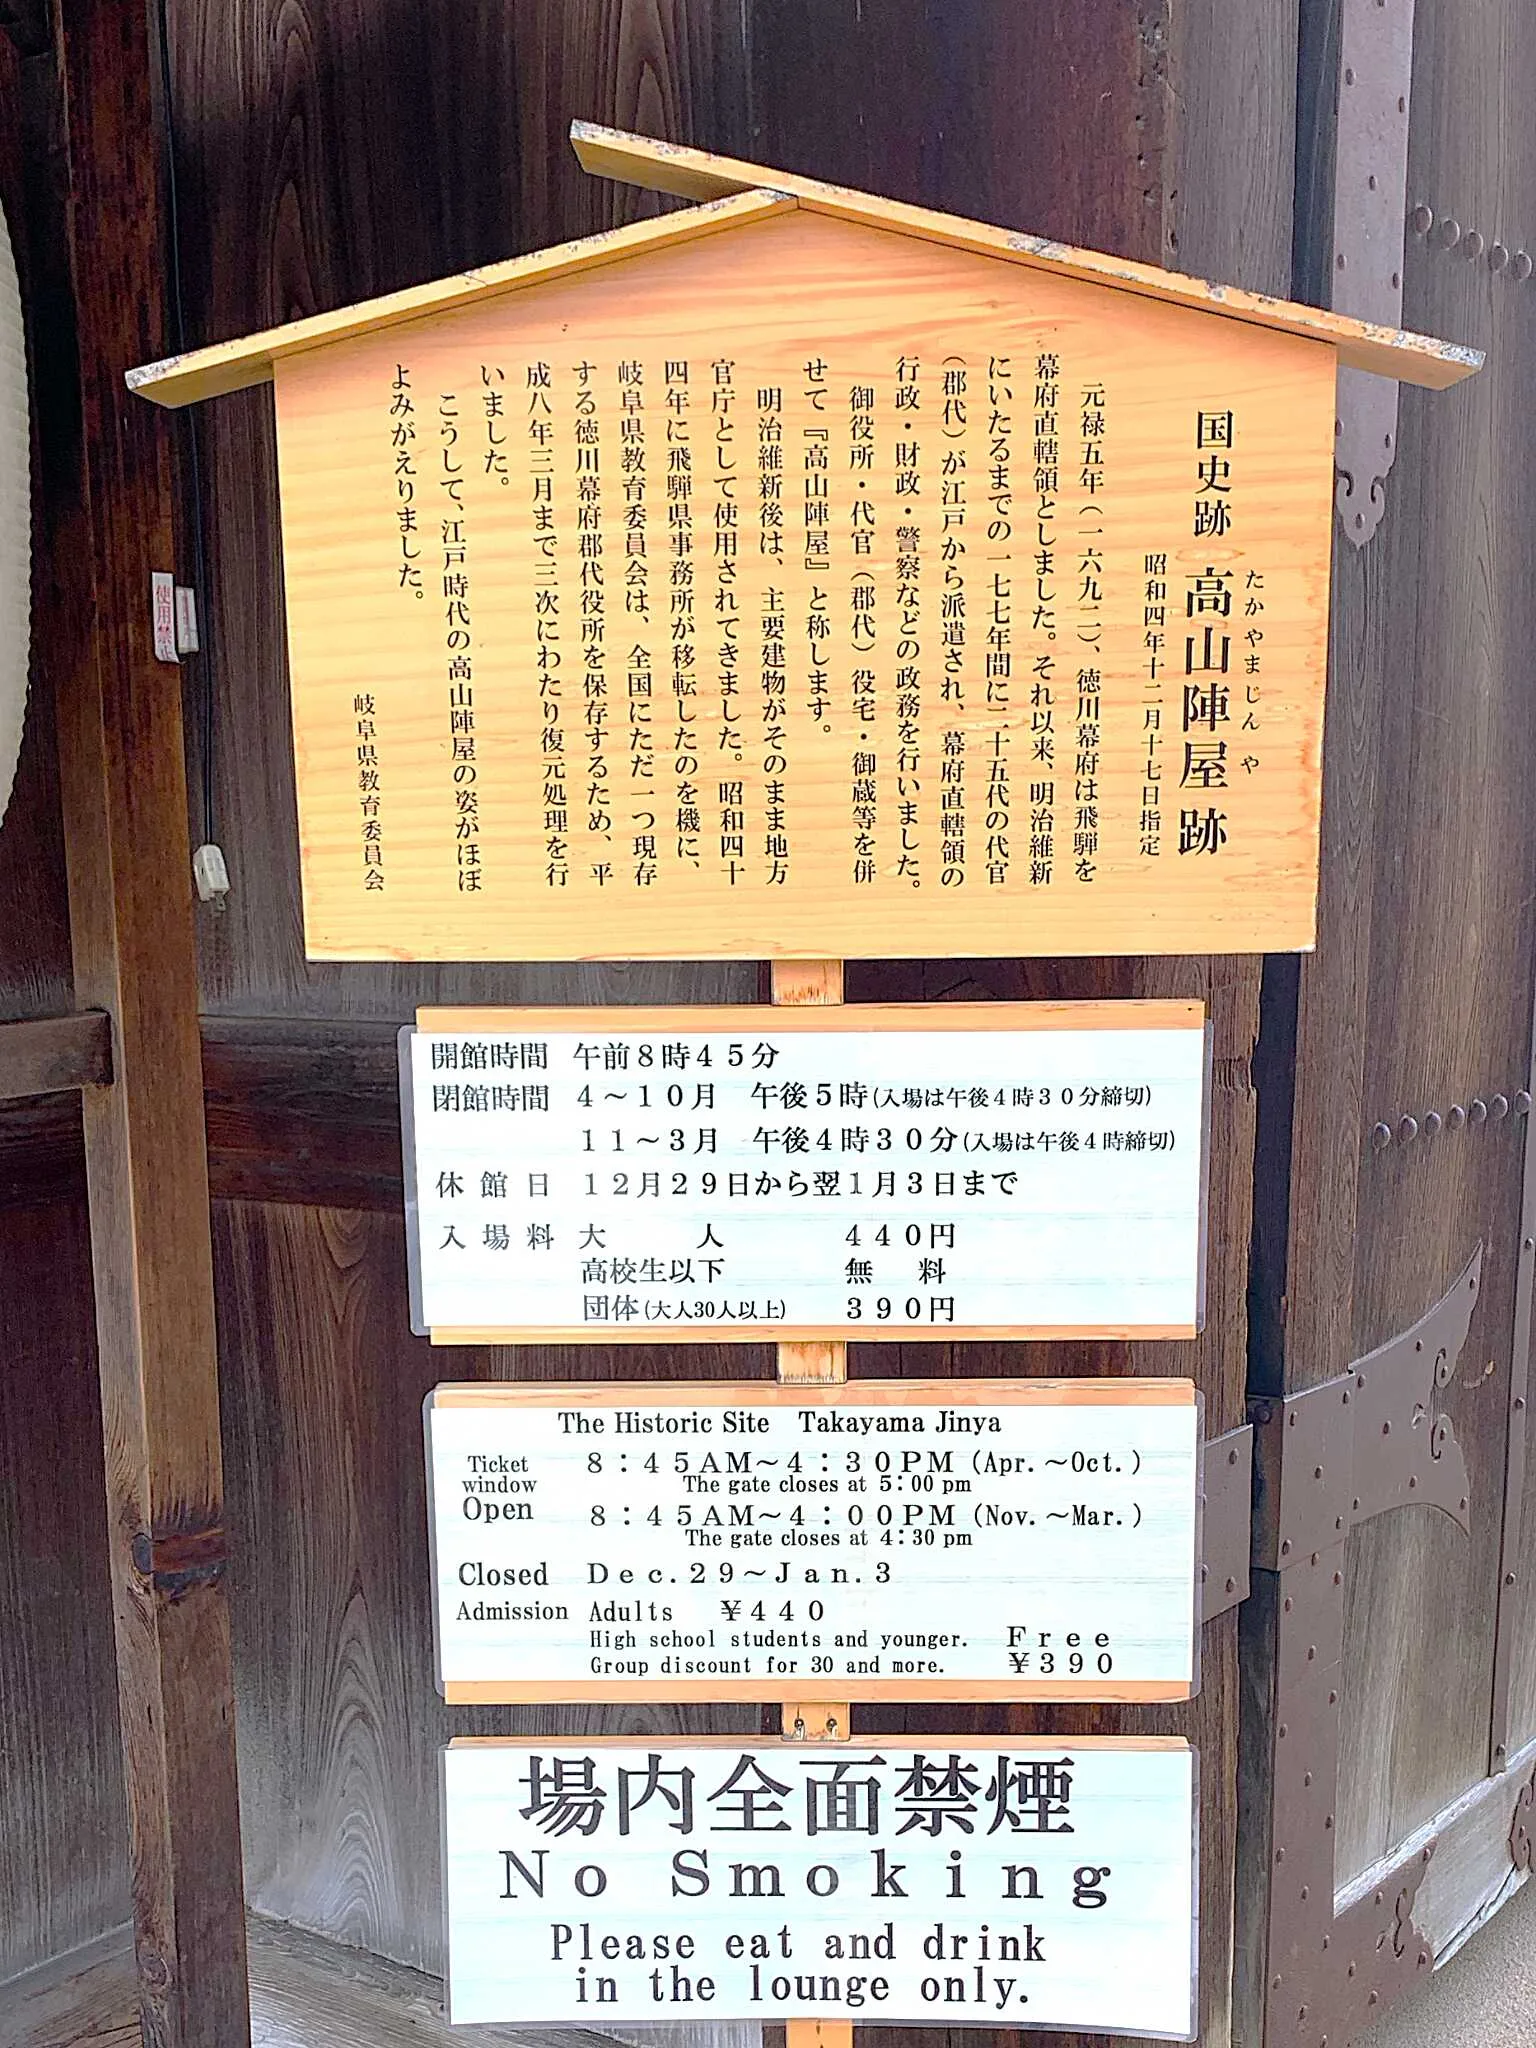 国史跡 高山陣屋跡
たかやまじんや
昭和四年十二月十七日指定
元禄五年(一六九二)、徳川幕府は飛騨を
幕府直轄領としました。それ以来、明治維新
にいたるまでの一七七年間に二十五代の代官
(郡代)が江戸から派遣され、幕府直轄領の
行政・財政・警察などの政務を行いました。
御役所・代官(郡代)役宅・御蔵等を併
せて『高山陣屋』と称します。
明治維新後は、主要建物がそのまま地方
官庁として使用されてきました。昭和四十
四年に飛騨県事務所が移転したのを機に、
岐阜県教育委員会は、全国にただ一つ現存
する徳川幕府郡代役所を保存するため、平
成八年三月まで三次にわたり復元処理を行
いました。
こうして、江戸時代の高山陣屋の姿がほぼ
よみがえりました。
岐阜県教育委員会
使用禁止
開館時間 午前8時45分
閉館時間 4~10月 午後5時(入場は午後4時30分締切)
11~3月 午後4時30分(入場は午後4時締切)
休館日 12月29日から翌1月3日まで
入場料 大人 440円
高校生以下 無料
団体(大人30人以上) 390円
The Historic Site Takayama Jinya
Ticket window Open 8:45AM~4:30PM (Apr.~Oct.)
The gate closes at 5:00 pm
8:45AM~4:00PM (Nov.~Mar.)
The gate closes at 4:30 pm
Closed Dec.29~Jan.3
Admission Adults ¥440
High school students and younger. Free
Group discount for 30 and more. ¥390
場内全面禁煙
No Smoking
Please eat and drink
in the lounge only.